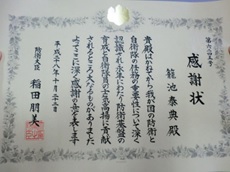 感謝状
籠池泰典殿
貴殿はかねてから我が国の防衛と
自衛隊の任務の重要性について深く
認識され永年にわたり防衛基盤の
育成と自衛隊員の士気高揚に貢献
されるところ大なるものがありました
よってここに深く感謝の意を表します
平成二十八年十月二十二日
防衛大臣
稲田朋美